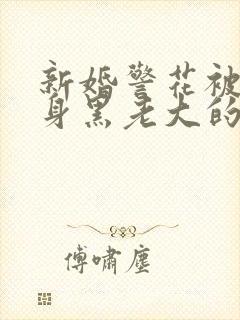 新婚警花被
身黑老大的
傅啸尘